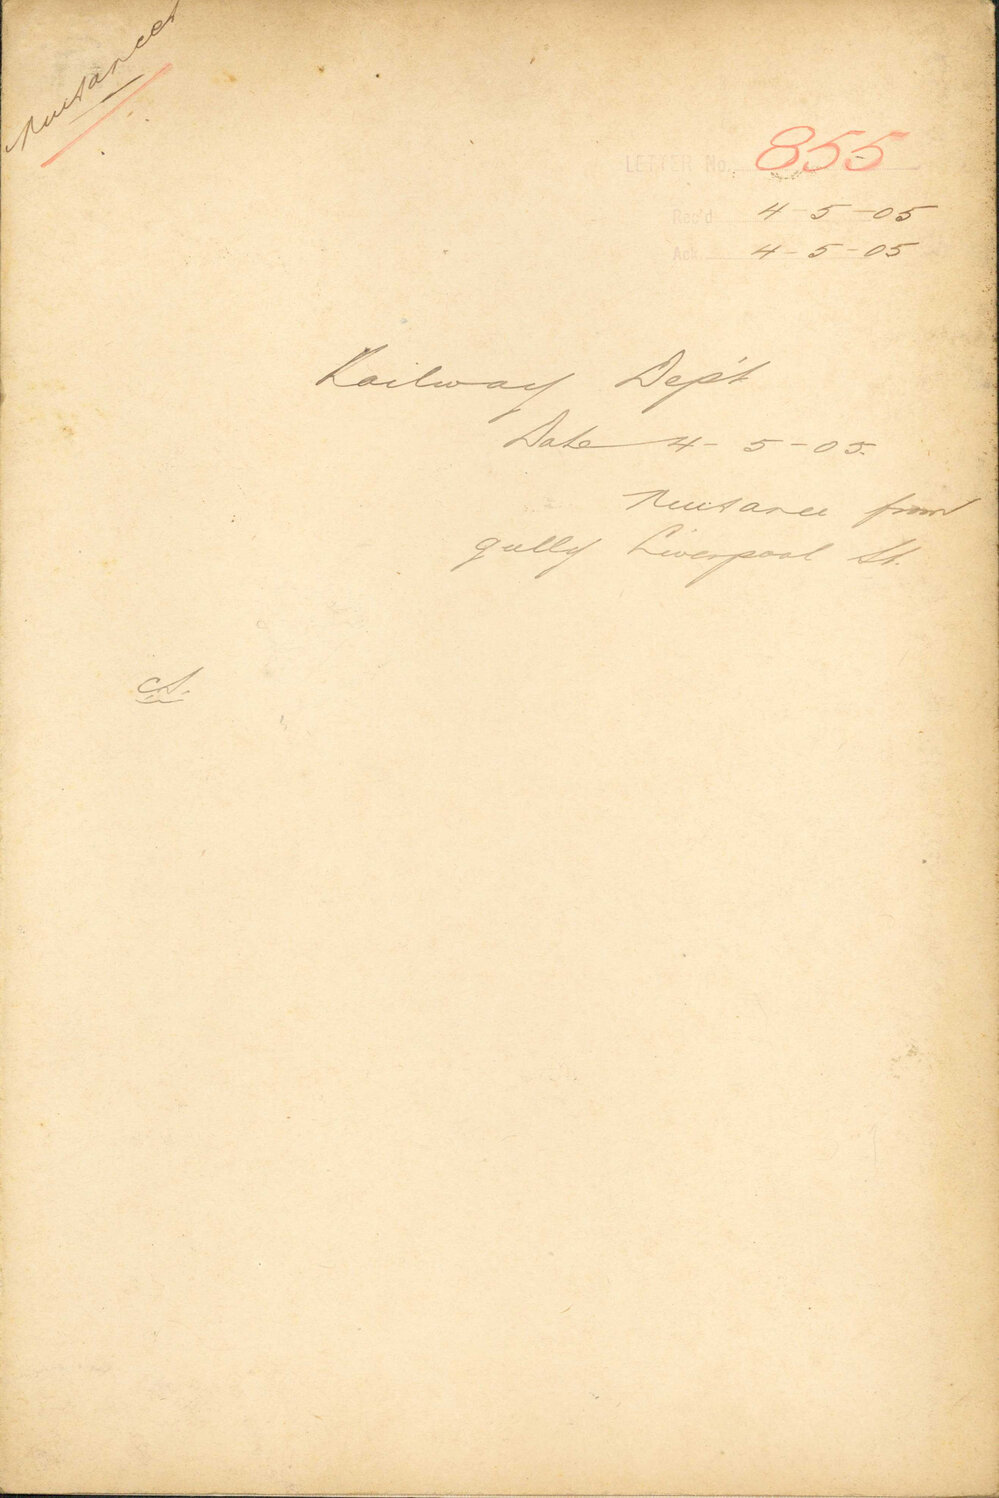 Nuisances
LETTER No. 855
Rec'd 4-5-05
Ack. 4-5-05
Railway Dep't
Date 4-5-05.
Nuisance from
gully Liverpool St.